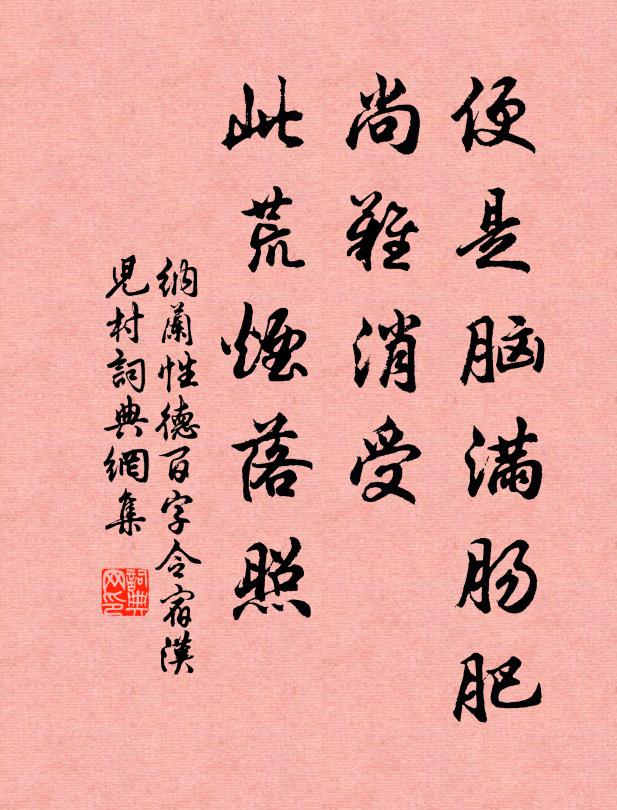 便是脑满肠肥
尚难消受
此荒烟落照
纳兰性德百字令宿汉
儿村詞典網集
詞典
网印